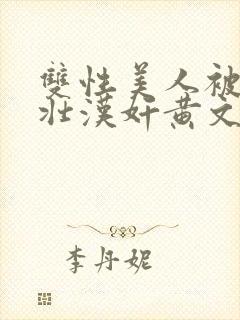 雙性美人被
壯漢奸黃文
李丹妮